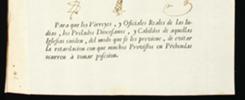 Para que los Virreyes, y Oficiales Reales de las Indias, los Prelados Diocesanos, y Cabildos de aquellas
Iglesias cuiden, del modo que se les previene, de evitar
la retardacion con que muchos Provistos en Prebendas
ocurren a tomar posesion.